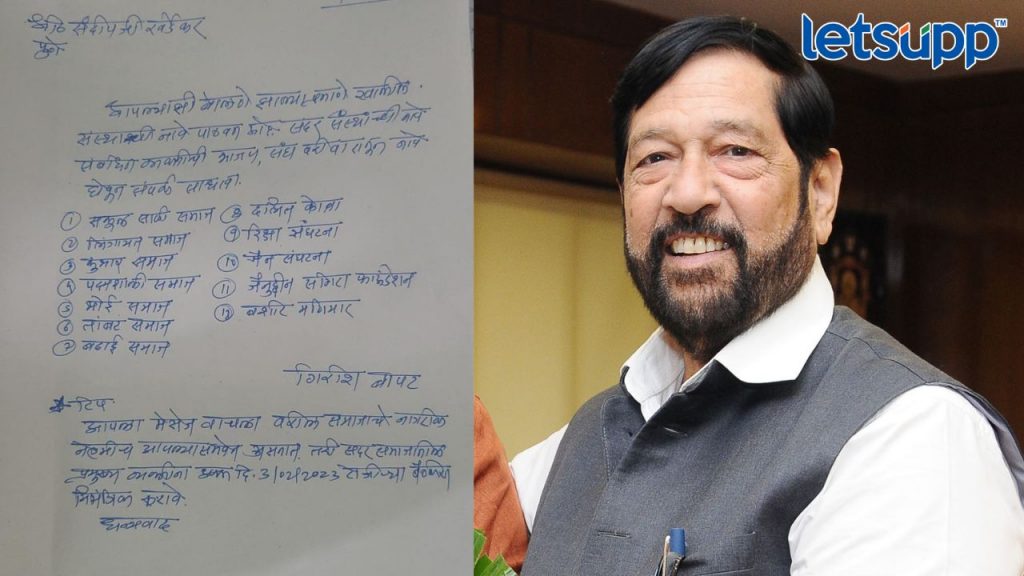 प्रति संदीपजी खर्डेकर
पुणे
आपल्याशी बोलणे झाल्याप्रमाणे खालील
संस्थांची नावे पाठवत आहे सदर संस्थांची नावे
संबंधित व्यक्तींची भाजप, संघ परीवारातून नावे
घेवून संपर्क साधावा.
① सकल माळी समाज
② लिंगायत समाज
③ कुंभार समाज
④ पद्मशाली समाज
⑤ भोई समाज
⑥ समाज
⑦ बढाई समाज
⑧ दलित कोब्रा
⑨ रिक्षा संघटना
⑩ जैन संघटना
⑪ जैनुद्दीन फाउंडेशन
⑫ बशीर मणियार
गिरीश बापट
टिप
आपला मेसेज वाचला वरील समाजाचे नागरीक
नेहमीच आपल्यासमवेत असतात तरी सदर समाजातील
प्रमुख व्यक्तींना उद्या दि 3/02/2023 रोजीच्या बैठकीस
निमंत्रित करावे.
धन्यवाद
letsupp™